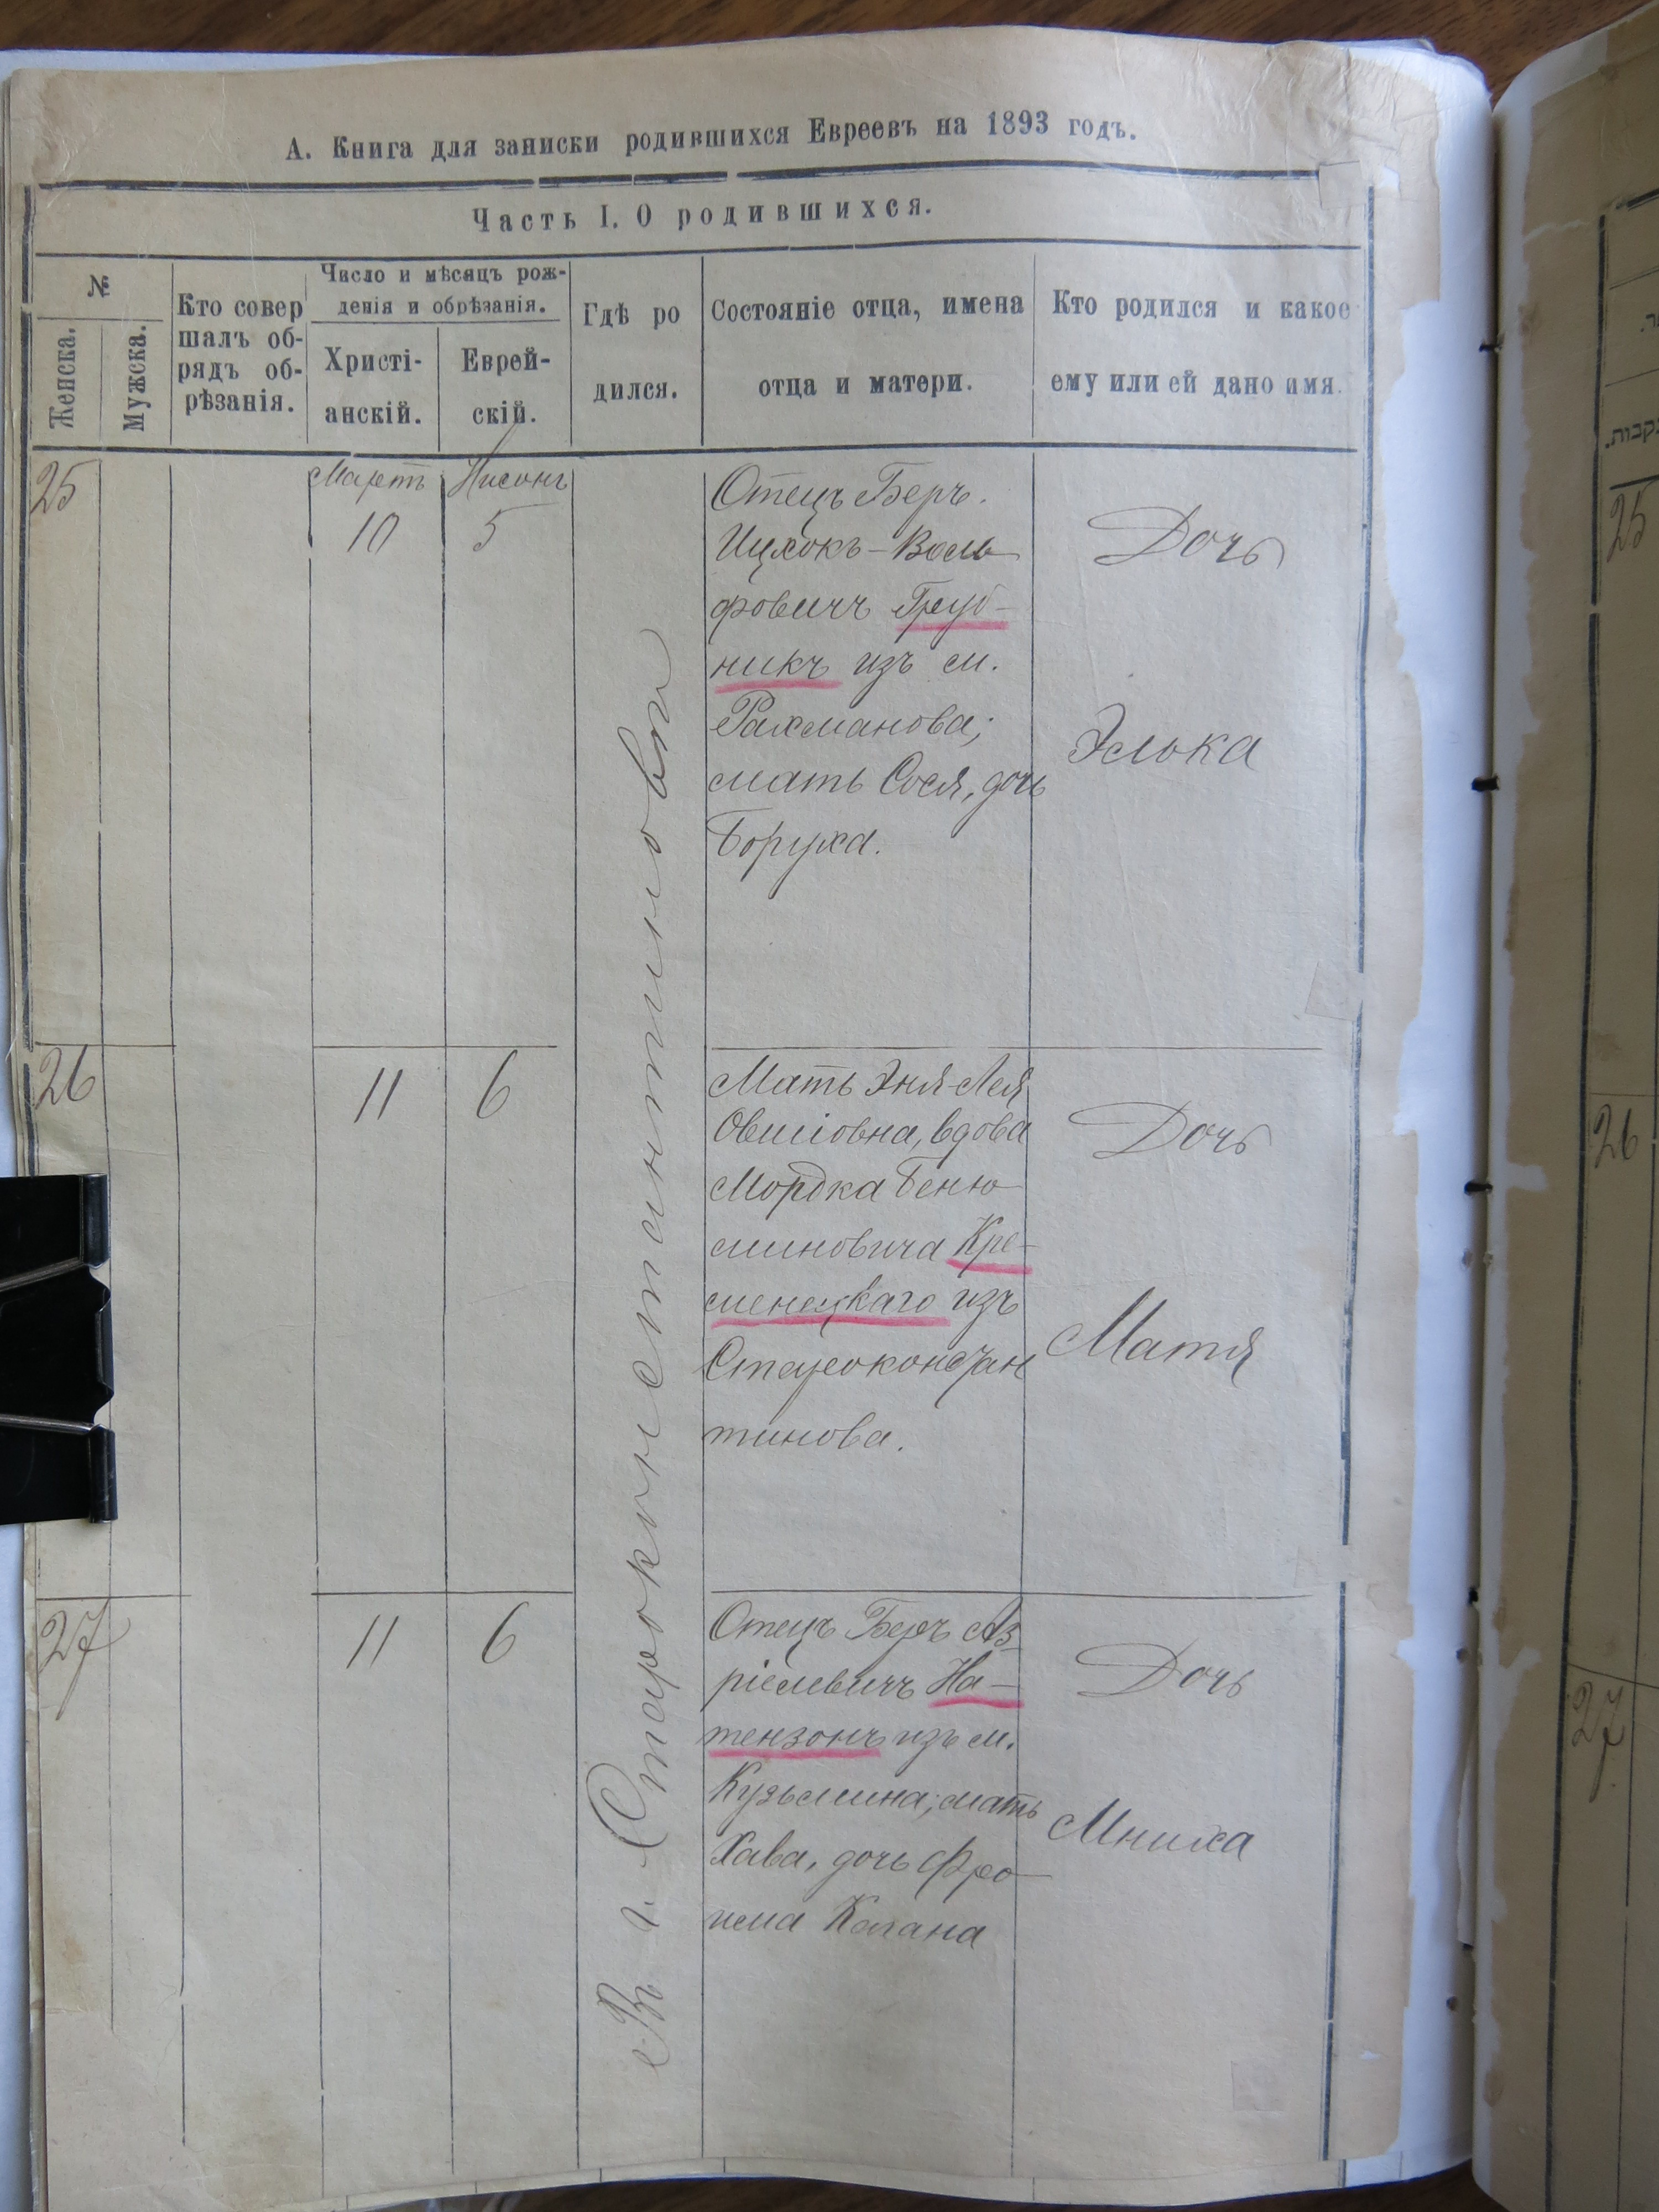 А. Книга для записки родившихся Евреевъ на 1893 годъ.
Часть I. О родившихся.
№
Женска.
Мужска.
Кто совер
шалъ об-
рядъ об-
рѣзанія.
Число и мѣсяцъ рож-
денія и обрѣзанія.
Христі-
анскій.
Еврей-
скій.
Гдѣ ро
дился.
Состояніе отца, имена
отца и матери.
Кто родился и какое
ему или ей дано имя.
Въ г. Староконстантиновѣ
25
Мартъ
10
Нисонъ
5
Отецъ Беръ.
Ицхокъ-Воль
фовичъ Груб-
никъ изъ м.
Рахманова;
мать Сося, дочь
Боруха.
Дочь
Элька
26
11
6
Мать Эня-Лея
Овшіовна, вдова
Мордка Беню
миновича Кре-
менецкаго изъ
Староконстан
тинова.
Дочь
Матя
27
11
6
Отецъ Беръ Аз
ріелевичъ На-
тензонъ изъ м.
Кузьмина; мать
Хава, дочь Фро-
има Когана
Дочь
Мниха
25
26
27